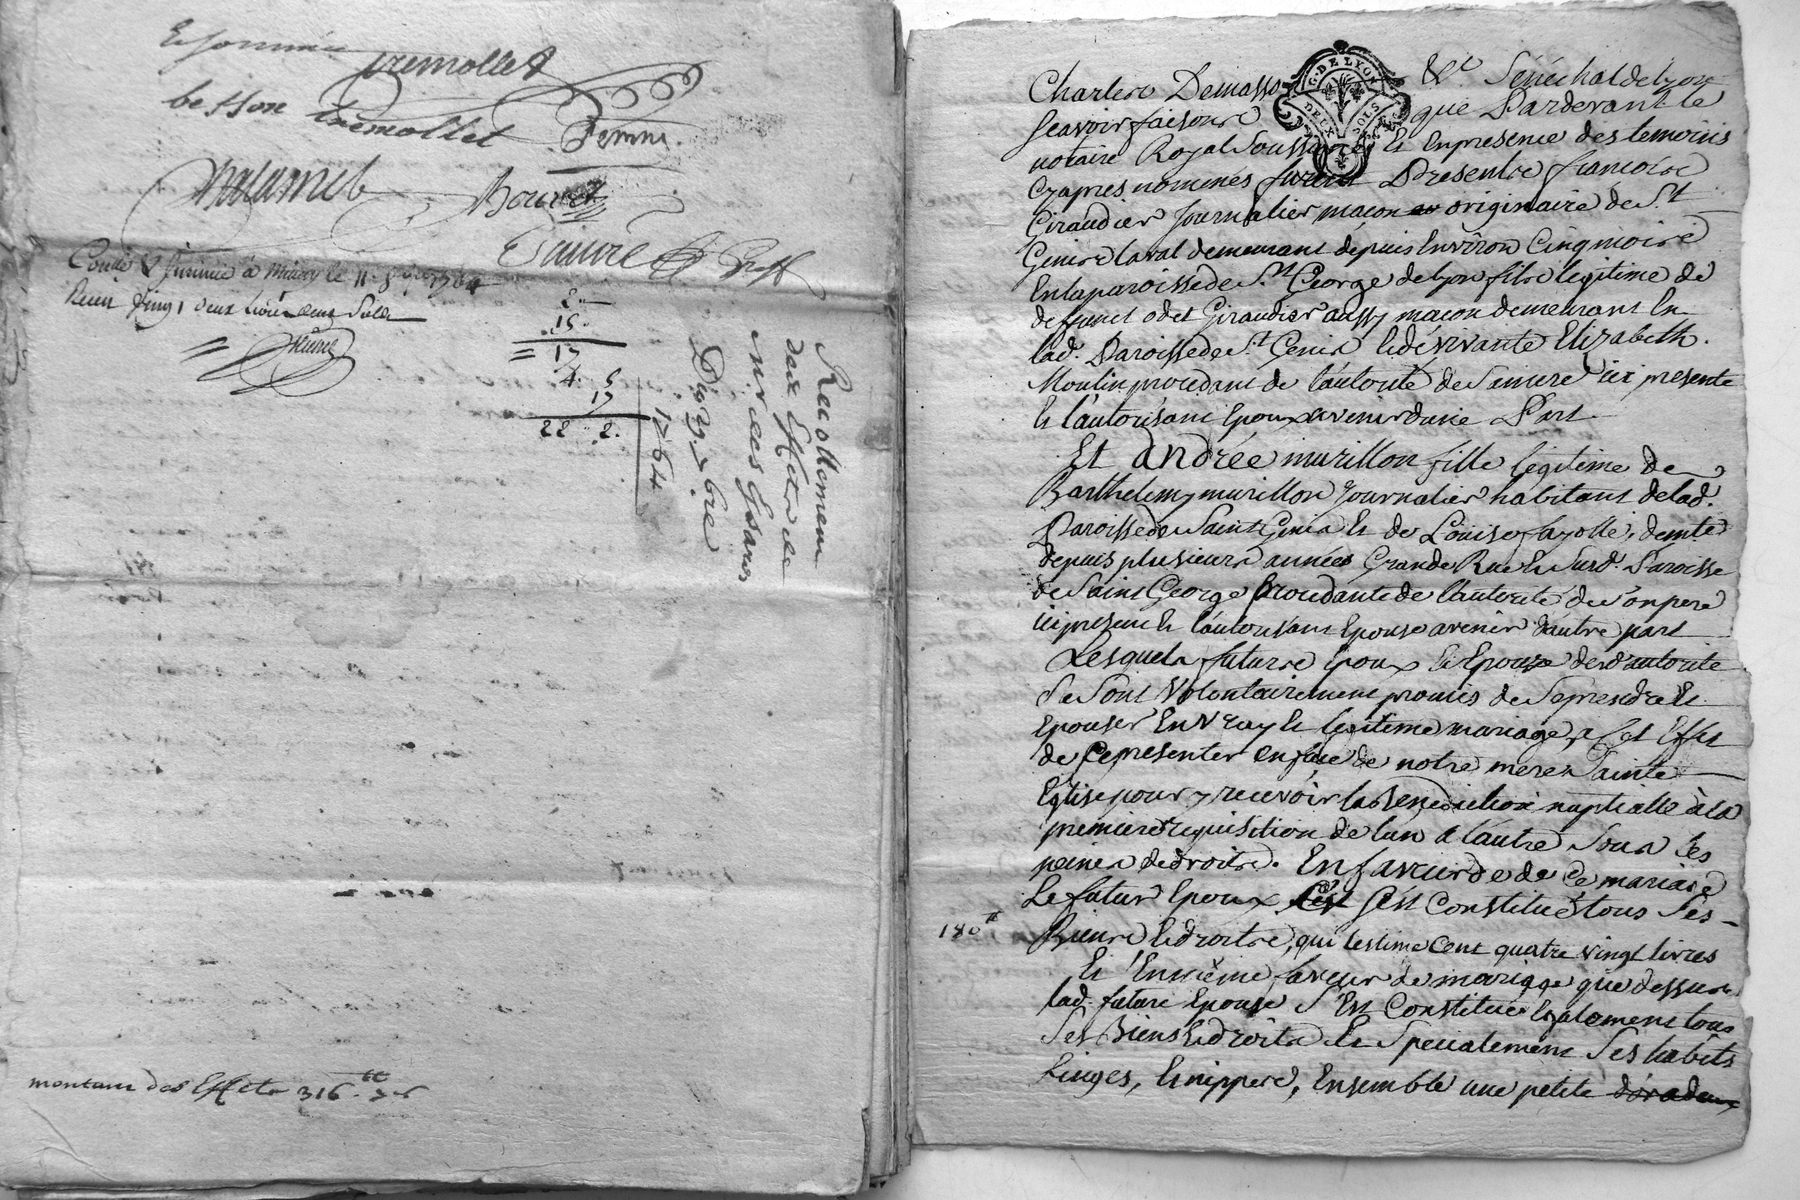 tremollet
besson tremollet femme.
malamet Bouvet
1764
Recu vingt deux livres deux sols
2.
15.
17
4. 5
17
22 2.
Recollement
des Effets de
Mr. des Essarts
Du 29 xbre
1764
montant des Effets 316.tt
Charles Demasso Sénéchal de Lyon
Scavoir faisons que Pardevant le
notaire Royal Soussigné Et En presence des temoins
Cyapres nommés furent Presents francois
Giraudier journalier macon originaire de St.
Genis laval demeurant depuis Environ Cinq mois
En la paroisse de St. George de Lyon fils legitime de
deffunct odet Giraudier aussy macon demeurant En
lad. Paroisse de St. Genis Et de vivante Elizabeth
Moulin procedant de l'autorité de Sa mere ici presente
Et l'autorisant Epoux avenir d'une Part
Et andrée murillon fille legitime de
Barthelemy murillon journalier habitant de lad.
Paroisse de Saint Genis Et de Louise fayolle, demte
depuis plusieurs années Grande Rue Et Susd. Paroisse
de Saint George procedante de l'autorité de Son pere
ici present Et l'autorisant Epouse avenir d'autre part
Lesquels futurs Epoux Et Epouse de d. autorité
Se Sont Volontairement promis de Se prendre Et
Epouser En vray Et legitime mariage, a Cet Effet
de Ce presenter en face de notre mere Sainte
Eglise pour y recevoir la Benediction nuptialle à la
premiere requisition de l'un a l'autre Sous les
peines de droits. En faveur de de Ce mariage
Le futur Epoux S'est Constitué tous Ses
180tt
Biens Et droits, qu'il estime cent quatre vingt livres
Et En meme faveur de mariage que dessus
lad. future Epouse S'Est Constitué Egalement tous
Ses Biens Et droits Et Specialement Ses habits
Linges, Et nippes, Ensemble une petite
G. DE LYON
DEUX SOLS